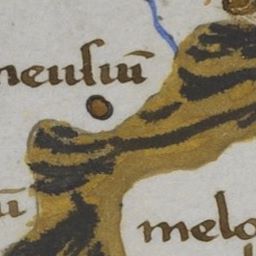 neusiū
ū
melo